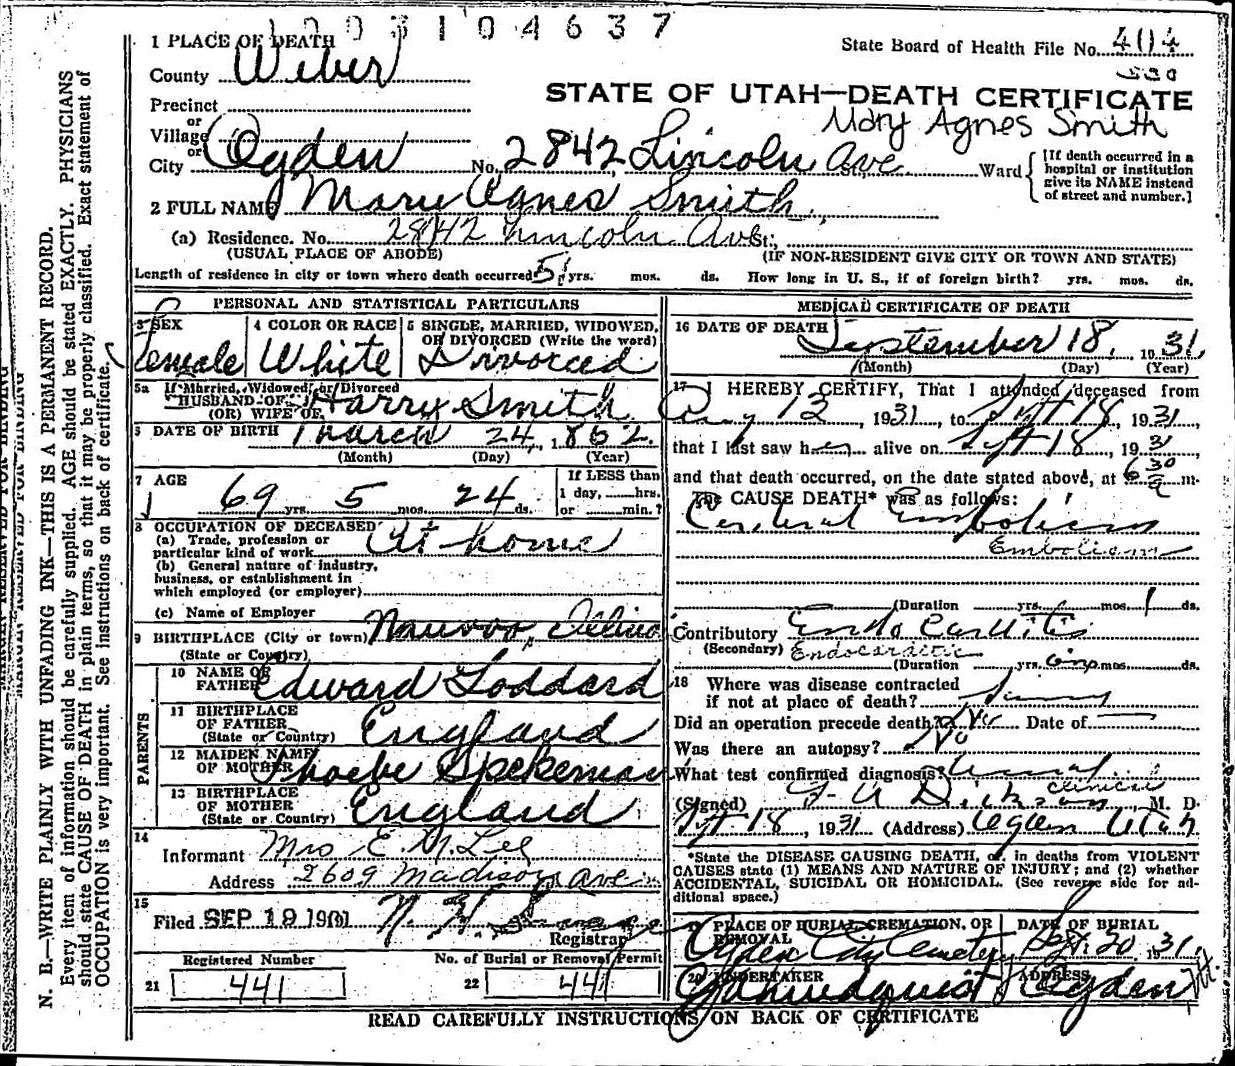 1003104637
1 PLACE OF DEATH
State Board of Health File No. 404
County Weber
530
STATE OF UTAH—DEATH CERTIFICATE
Precinct
or
Village
Mary Agnes Smith
or
City Ogden No. 2842 Lincoln Ave St., Ward
[If death occurred in a
hospital or institution
give its NAME instead
of street and number.]
2 FULL NAME Mary Agnes Smith
(a) Residence. No. 2842 Lincoln Ave St.,
(USUAL PLACE OF ABODE) (IF NON-RESIDENT GIVE CITY OR TOWN AND STATE)
Length of residence in city or town where death occurred 51 yrs. mos. ds. How long in U. S., if of foreign birth? yrs. mos. ds.
PERSONAL AND STATISTICAL PARTICULARS
3 SEX
Female
4 COLOR OR RACE
White
5 SINGLE, MARRIED, WIDOWED,
OR DIVORCED (Write the word)
Divorced
5a If Married, Widowed, or Divorced
HUSBAND OF
(OR) WIFE OF Harry Smith
6 DATE OF BIRTH March 24, 1862.
(Month) (Day) (Year)
7 AGE
69 yrs. 5 mos. 24 ds.
If LESS than
1 day, hrs.
or min.?
8 OCCUPATION OF DECEASED
(a) Trade, profession or
particular kind of work At home
(b) General nature of industry,
business, or establishment in
which employed (or employer)
(c) Name of Employer
9 BIRTHPLACE (City or town) Nauvoo, Illinois
(State or Country)
PARENTS
10 NAME OF
FATHER Edward Goddard
11 BIRTHPLACE
OF FATHER England
(State or Country)
12 MAIDEN NAME
OF MOTHER Phoebe Spekeman
13 BIRTHPLACE
OF MOTHER England
(State or Country)
14
Informant Mrs E. M. Lee
Address 2609 Madison Ave
15
Filed SEP 19 1931
Registrar
Registered Number
21 441
No. of Burial or Removal Permit
22 441
MEDICAL CERTIFICATE OF DEATH
16 DATE OF DEATH September 18, 1931
(Month) (Day) (Year)
17 I HEREBY CERTIFY, That I attended deceased from
Aug 12, 1931, to Sept 18, 1931,
that I last saw her alive on Sept 18, 1931
and that death occurred, on the date stated above, at 6 30 a m.
The CAUSE DEATH* was as follows:
Cerebral Embolism
Embolism
(Duration yrs. mos. 1 ds.
Contributory Endo Carditis
(Secondary) Endocarditis
(Duration yrs. mos. ds.
18 Where was disease contracted
if not at place of death?
Did an operation precede death? No Date of
Was there an autopsy? No
What test confirmed diagnosis? Clinical
clinical
(Signed) Dickson, M. D.
Sept 18, 1931 (Address) Ogden Utah
*State the DISEASE CAUSING DEATH, or, in deaths from VIOLENT
CAUSES state (1) MEANS AND NATURE OF INJURY; and (2) whether
ACCIDENTAL, SUICIDAL OR HOMICIDAL. (See reverse side for ad-
ditional space.)
19 PLACE OF BURIAL, CREMATION, OR
REMOVAL
Ogden City Cemetery
DATE OF BURIAL
Sept. 20 1931
20 UNDERTAKER
Lindquist
ADDRESS
Ogden, Ut.
READ CAREFULLY INSTRUCTIONS ON BACK OF CERTIFICATE
MARGIN RESERVED FOR BINDING
N. B.—WRITE PLAINLY WITH UNFADING INK—THIS IS A PERMANENT RECORD.
Every item of information should be carefully supplied. AGE should be stated EXACTLY. PHYSICIANS
should state CAUSE OF DEATH in plain terms, so that it may be properly classified. Exact statement of
OCCUPATION is very important. See instructions on back of certificate.